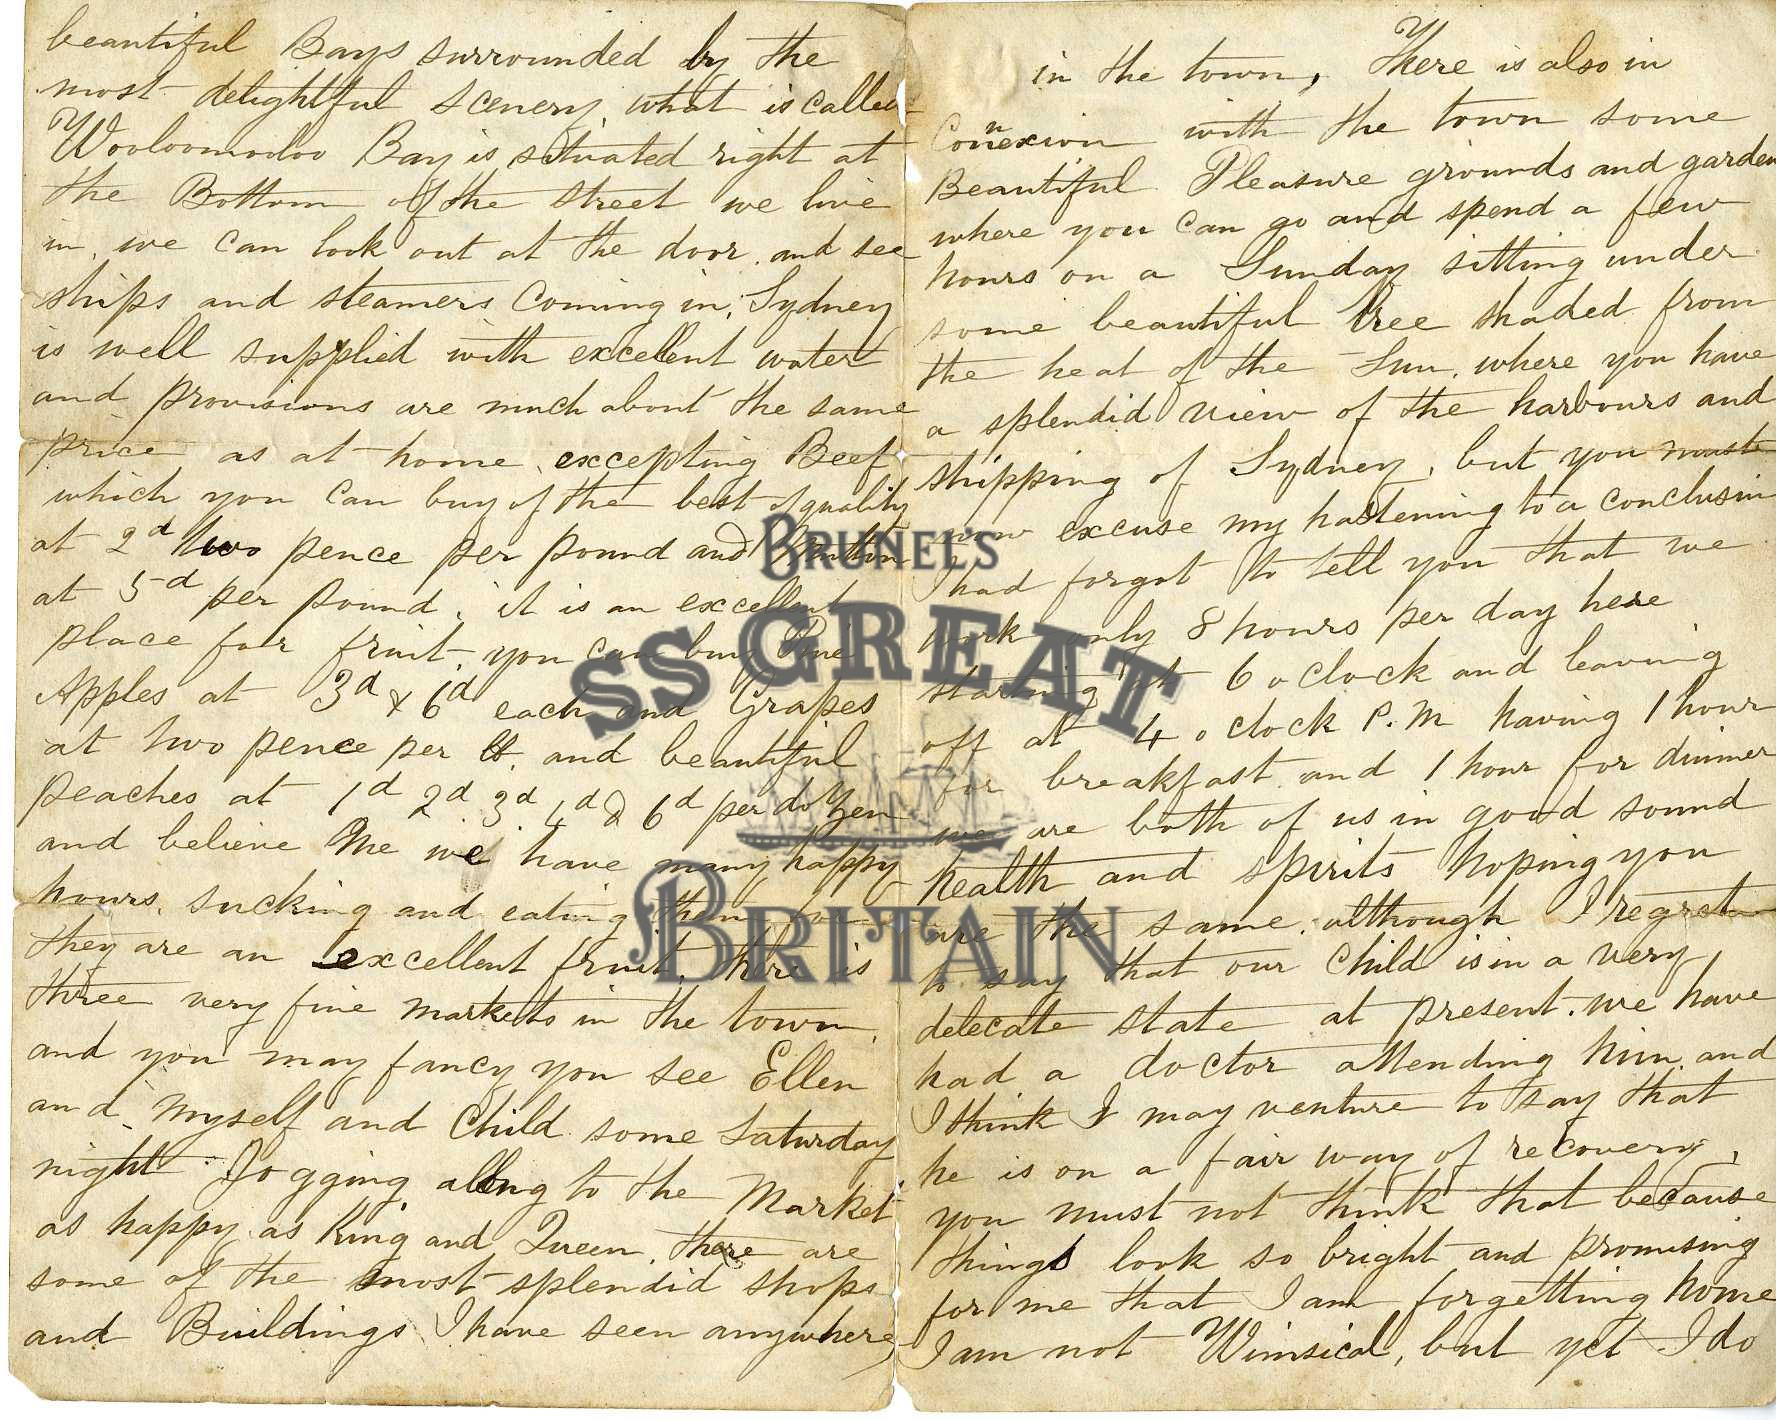 beautiful Bays surrounded by the
most delightful scenery, what is called
Wooloomooloo Bay is situated right at
the Bottom of the street we live
in, we can look out at the door and see
ships and steamers Coming in, Sydney
is well supplied with excellent water
and provisions are much about the same
price as at home, excepting Beef
which you can buy of the best of quality
at 2d two pence per pound and Mutton
at 5d per pound, it is an excellent
place for fruit, you can buy Pine
Apples at 3d & 6d each and Grapes
at two pence per lb. and beautiful
peaches at 1d 2d 3d 4d & 6d per dozen
and believe Me we have many happy
hours, sucking and eating them for
they are an excellent fruit, there is
three very fine markets in the town,
and you may fancy you see Ellen
and Myself and Child some Saturday
night Jogging along to the Market
as happy as King and Queen, there are
some of the most splendid shops
and Buildings I have seen anywhere,
in the town, There is also in
Connexion with the town some
Beautiful Pleasure grounds and garden
where you can go and spend a few
hours on a Sunday sitting under
some beautiful tree shaded from
the heat of the Sun, where you have
a splendid view of the harbours and
shipping of Sydney, but you must
now excuse my hastening to a conclusion
I had forgot to tell you that we
work only 8 hours per day here
starting at 6 o clock and leaving
off at 4 o clock P.M having 1 hour
for breakfast and 1 hour for dinner
we are both of us in good sound
health and spirits hoping you
are the same, although I regret
to say that our Child is in a very
delecate state at present. we have
had a doctor attending him, and
I think I may venture to say that
he is on a fair way of recovery,
you must not think that because
things look so bright and promising
for me that I am forgetting home
I am not Wimsical, but yet I do
BRUNEL'S
SS GREAT
BRITAIN